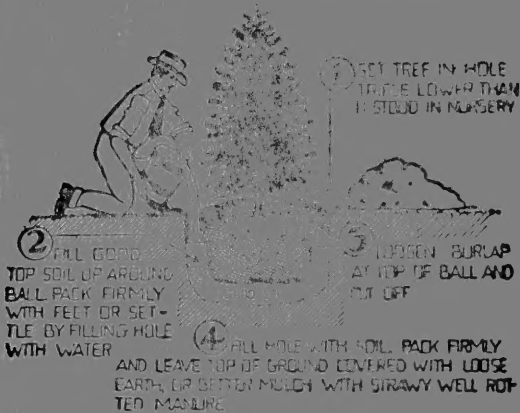 1 SET TREE IN HOLE
TRIFLE LOWER THAN
IT STOOD IN NURSERY
2 FILL GOOD
TOP SOIL UP AROUND
BALL PACK FIRMLY
WITH FEET OR SET-
TLE BY FILLING HOLE
WITH WATER
3 LOOSEN BURLAP
AT TOP OF BALL AND
CUT OFF
4 FILL HOLE WITH SOIL. PACK FIRMLY
AND LEAVE TOP OF GROUND COVERED WITH LOOSE
EARTH, OR BETTER MULCH WITH STRAWY WELL ROT-
TED MANURE